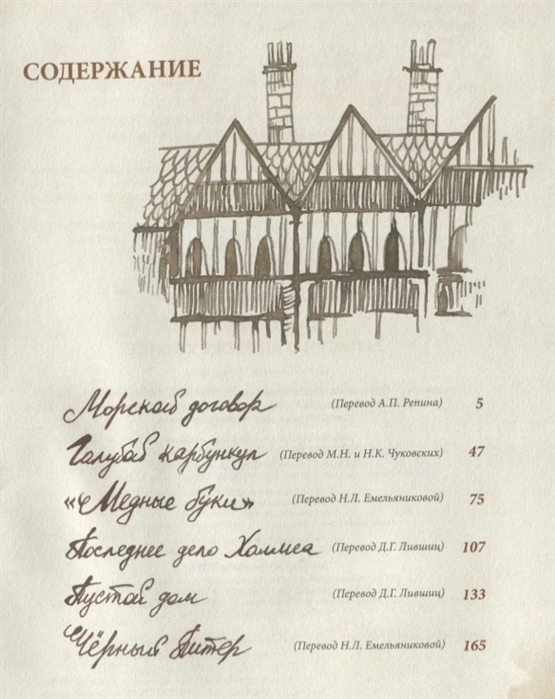 СОДЕРЖАНИЕ
Морской договор (Перевод А.П. Репина) 5
Голубой карбункул (Перевод М.Н. и Н.К. Чуковских) 47
«Медные буки» (Перевод Н.Л. Емельяниковой) 75
Последнее дело Холмса (Перевод Д.Г. Лившиц) 107
Пустой дом (Перевод Д.Г. Лившиц) 133
Чёрный Питер (Перевод Н.Л. Емельяниковой) 165